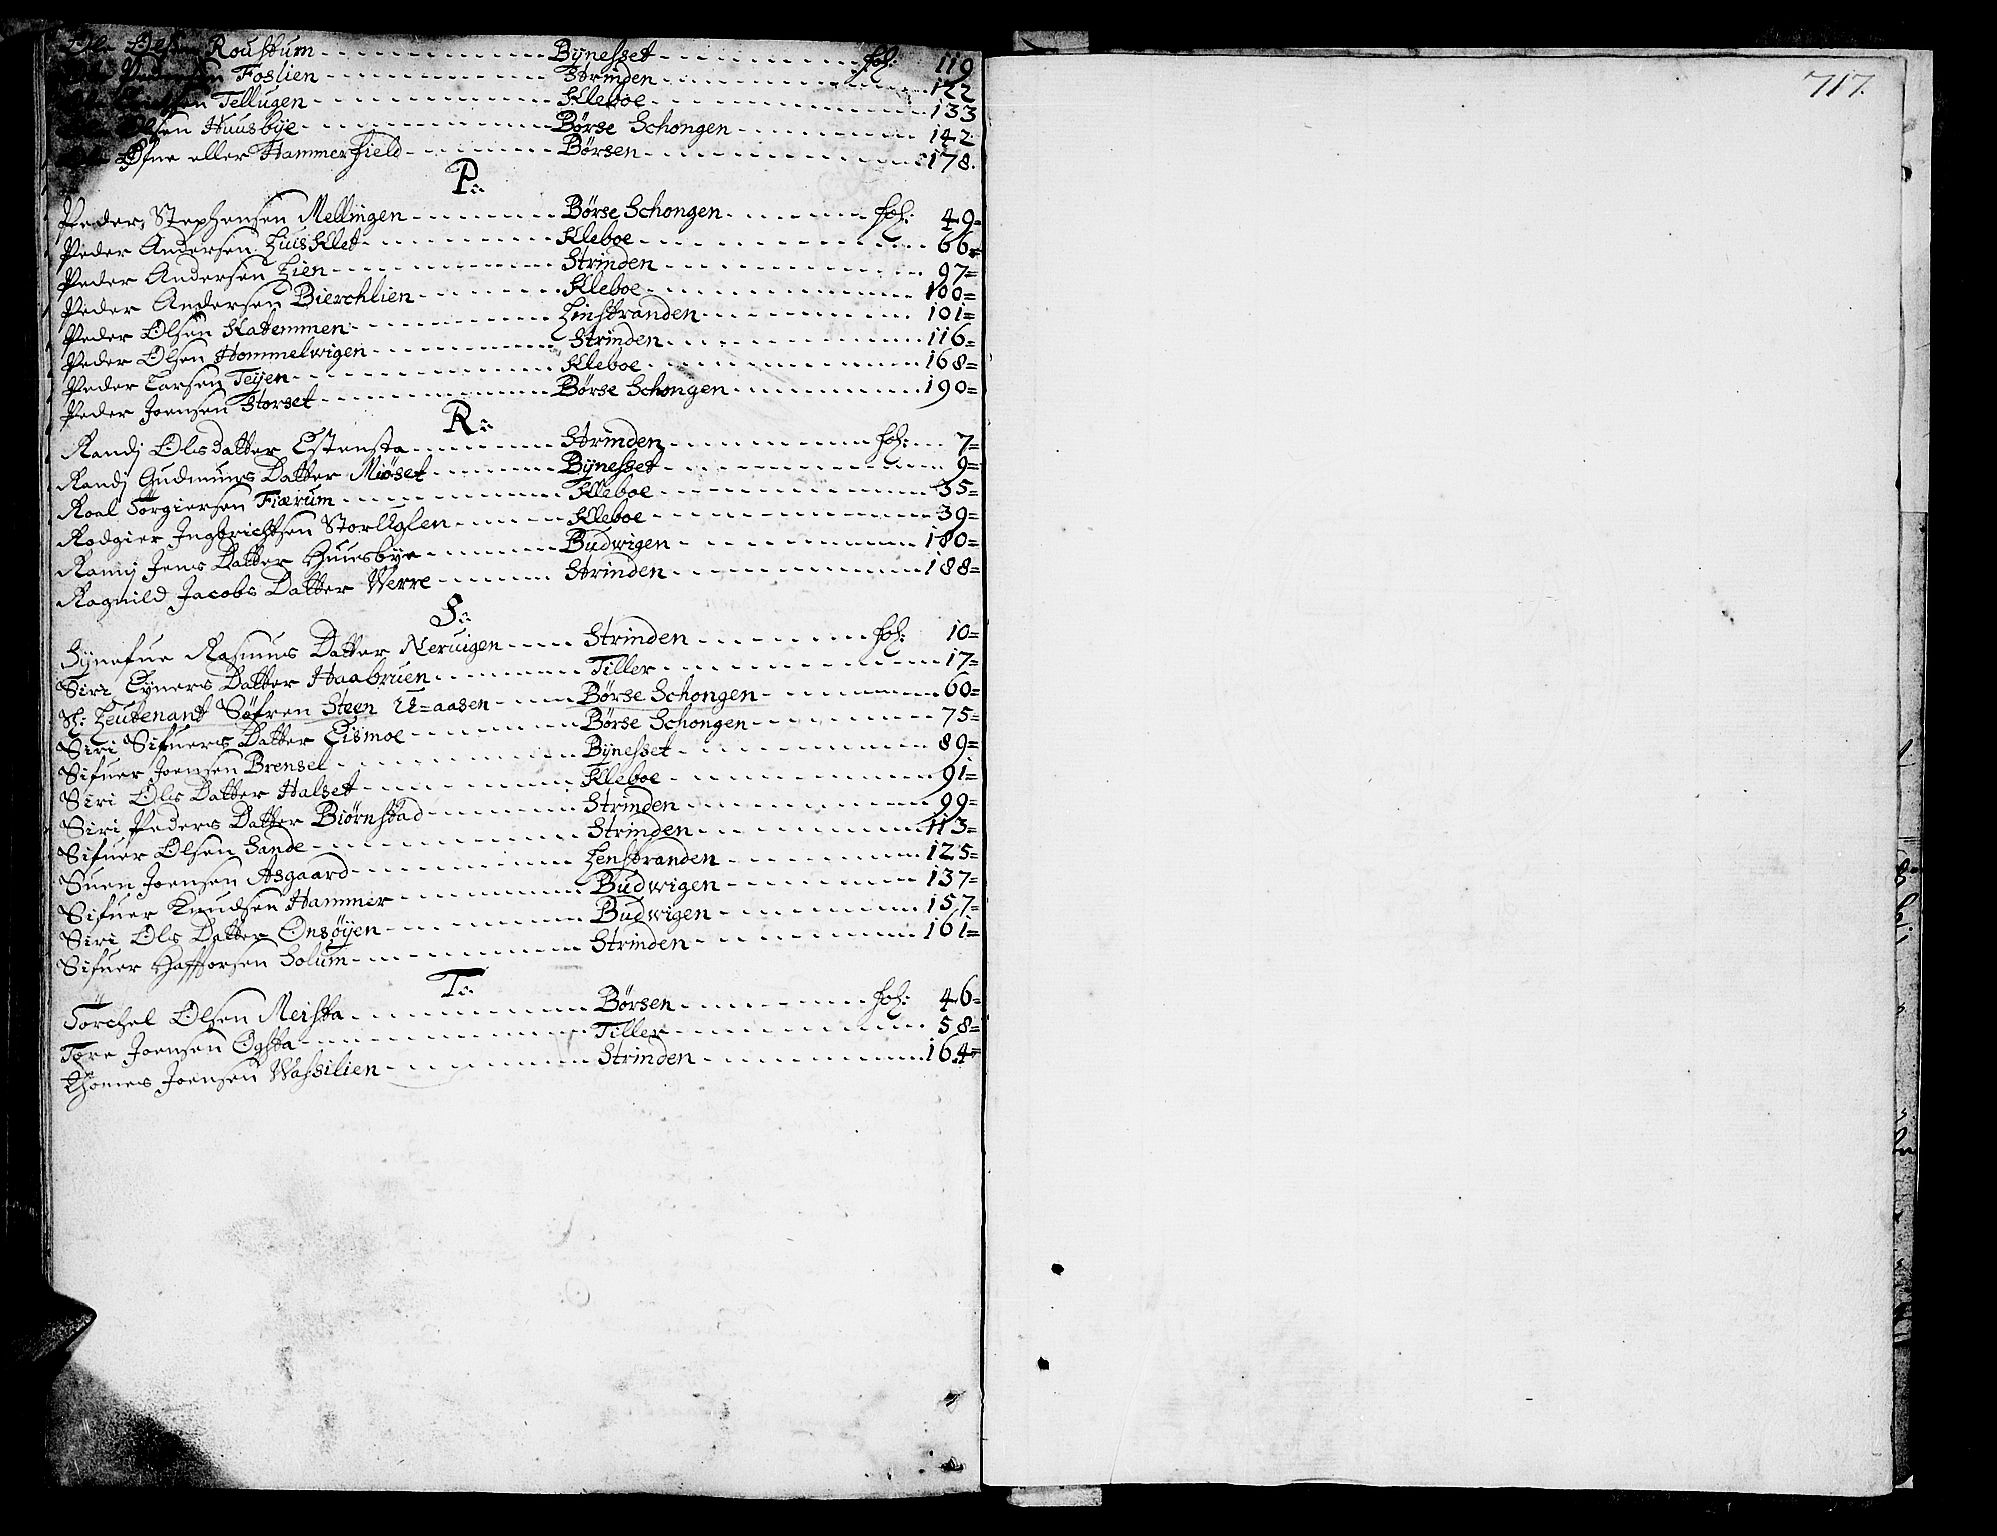 Ole Olsen Roustum - - - Bÿnesset - - - fol: 119
Ole Pedersen Foslien - - - Strinden - - - 122
Tellugen - - - Kleboe - - - 133
Ole Olsen Huusbÿe - - - Børse Schongen - - - 142
Øfne eller Hammerfield - - - Børsen - - - 178.
P:
Peder Stephensen Mellingen - - - Børse Schongen - - - fol: 49=
Peder Andersen Huusklet - - - Kleboe - - - 66=
Peder Andersen Lien - - - Strinden - - - 97=
Peder Andersen Bierchlien - - - Kleboe - - - 100=
Peder Olsen Slatemmen - - - Leinstranden - - - 101=
Peder Olsen Hommelwigen - - - Strinden - - - 116=
Peder Larsen Teÿen - - - Kleboe - - - 168=
Peder Joensen Storset - - - Børse Schongen - - - 190=
R:
Randj Olsdatter Estensta - - - Strinden - - - fol: 7=
Randj Gudmuns Datter Miøset - - - Bÿnesset - - - 9=
Roal Torgiersen Fiærum - - - Kleboe - - - 35=
Rodgier Ingbrichtsen StorUglen - - - Kleboe - - - 39=
Ranj Jens Datter Huusbÿe - - - Budwigen - - - 180=
Ragnild Jacobs Datter Werre - - - Strinden - - - 188=
S:
Sÿnefue Rasmus Datter Neruigen - - - Strinden - - - fol: 10=
Siri Eÿners Datter Haabruen - - - Tiller - - - 17=
Sl: Leutenant Søfren Steen U=aasen - - - Børse Schongen - - - 60=
Siri Sifuers Datter Eismoe - - - Børse Schongen - - - 75=
Sifuer Joensen Brensel - - - Bÿnesset - - - 89=
Siri Ols Datter Halset - - - Kleboe - - - 91=
Siri Peders Datter Biørnstad - - - Strinden - - - 99=
Sifuer Olsen Sande - - - Strinden - - - 113=
Suen Joensen Asgaard - - - Lenstranden - - - 125=
Sifuer Knudsen Hammer - - - Budwigen - - - 137=
Siri Ols Datter Onsøÿen - - - Budwigen - - - 157=
Sifuer Haffforsen Solum - - - Strinden - - - 161=
T:
Torchel Olsen Meista - - - Børsen - - - fol: 46=
Tore Joensen Ogsta - - - Tiller - - - 58=
Thomes Joensen Wassilien - - - Strinden - - - 164=
717.